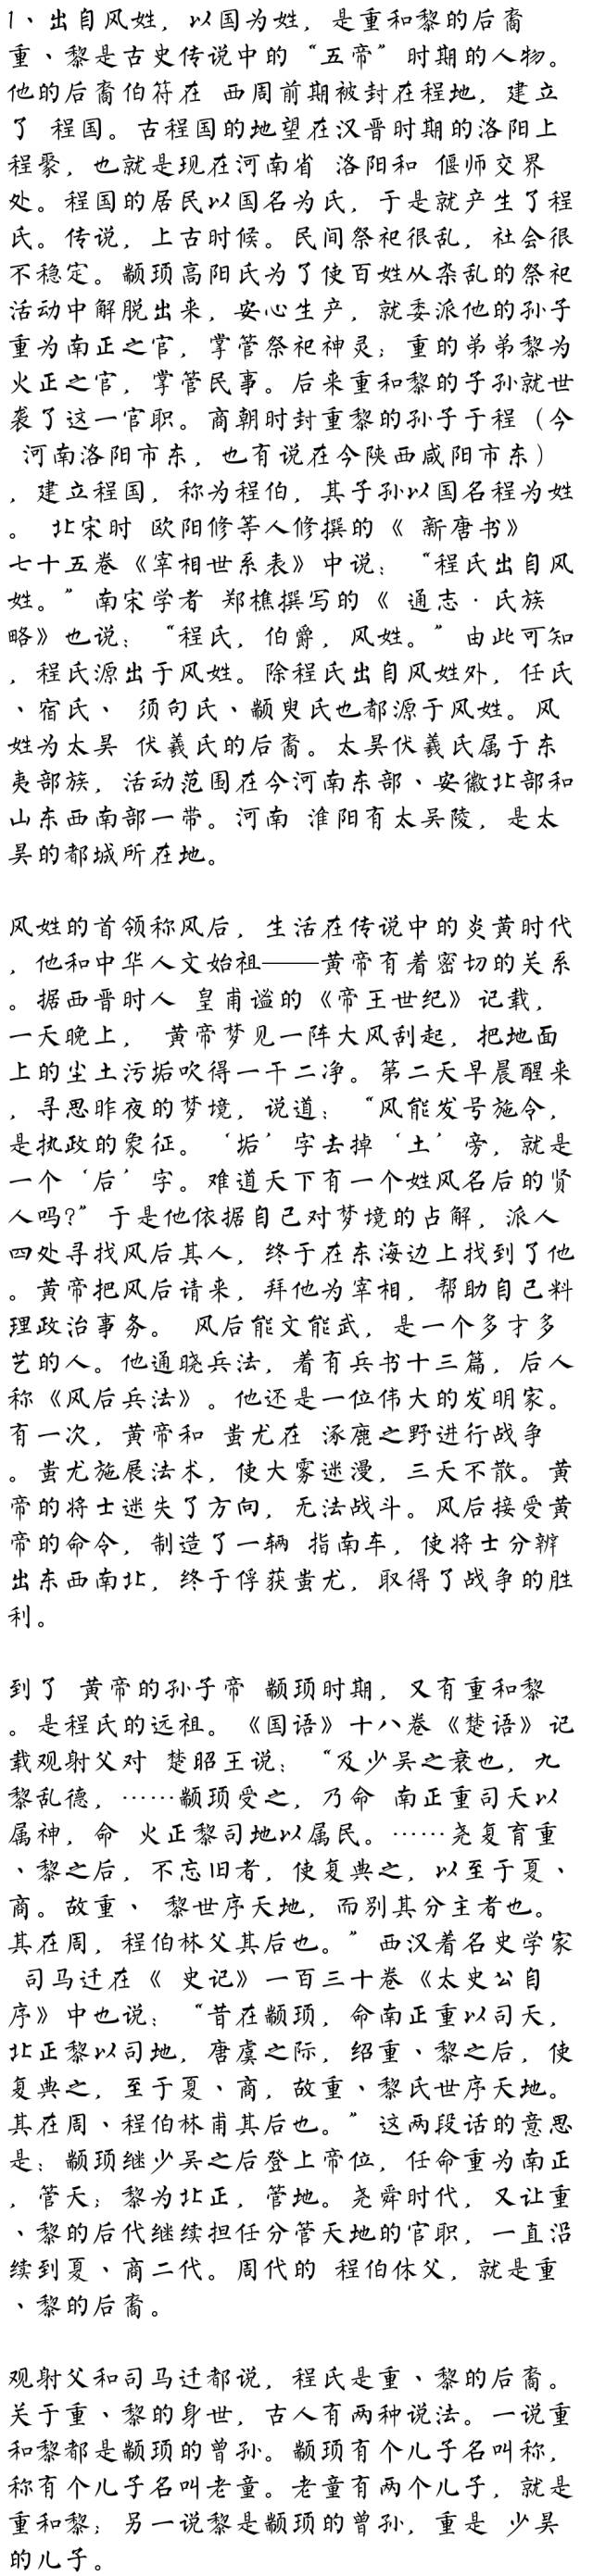 1、出自风姓，以国为姓，是重和黎的后裔
重、黎是古史传说中的“五帝”时期的人物。
他的后裔伯符在 西周前期被封在程地，建立
了 程国。古程国的地望在汉晋时期的洛阳上
程聚，也就是现在河南省 洛阳和 偃师交界
处。程国的居民以国名为氏，于是就产生了程
氏。传说，上古时候。民间祭祀很乱，社会很
不稳定。颛顼高阳氏为了使百姓从杂乱的祭祀
活动中解脱出来，安心生产，就委派他的孙子
重为南正之官，掌管祭祀神灵；重的弟弟黎为
火正之官，掌管民事。后来重和黎的子孙就世
袭了这一官职。商朝时封重黎的孙子于程（今
河南洛阳市东，也有说在今陕西咸阳市东）
，建立程国，称为程伯，其子孙以国名程为姓
。 北宋时 欧阳修等人修撰的《 新唐书》
七十五卷《宰相世系表》中说：“程氏出自风
姓。”南宋学者 郑樵撰写的《 通志·氏族
略》也说：“程氏，伯爵，风姓。”由此可知
，程氏源出于风姓。除程氏出自风姓外，任氏
、宿氏、 须句氏、颛臾氏也都源于风姓。风
姓为太昊 伏羲氏的后裔。太昊伏羲氏属于东
夷部族，活动范围在今河南东部、安徽北部和
山东西南部一带。河南 淮阳有太吴陵，是太
昊的都城所在地。
风姓的首领称风后，生活在传说中的炎黄时代
，他和中华人文始祖——黄帝有着密切的关系
。据西晋时人 皇甫谧的《帝王世纪》记载，
一天晚上， 黄帝梦见一阵大风刮起，把地面
上的尘土污垢吹得一干二净。第二天早晨醒来
，寻思昨夜的梦境，说道：“风能发号施令，
是执政的象征。‘垢’字去掉‘土’旁，就是
一个‘后’字。难道天下有一个姓风名后的贤
人吗?”于是他依据自己对梦境的占解，派人
四处寻找风后其人，终于在东海边上找到了他
。黄帝把风后请来，拜他为宰相，帮助自己料
理政治事务。 风后能文能武，是一个多才多
艺的人。他通晓兵法，着有兵书十三篇，后人
称《风后兵法》。他还是一位伟大的发明家。
有一次，黄帝和 蚩尤在 涿鹿之野进行战争
。蚩尤施展法术，使大雾迷漫，三天不散。黄
帝的将士迷失了方向，无法战斗。风后接受黄
帝的命令，制造了一辆 指南车，使将士分辨
出东西南北，终于俘获蚩尤，取得了战争的胜
利。
到了 黄帝的孙子帝 颛顼时期，又有重和黎
。是程氏的远祖。《国语》十八卷《楚语》记
载观射父对 楚昭王说：“及少吴之衰也，九
黎乱德，……颛顼受之，乃命 南正重司天以
属神，命 火正黎司地以属民。……尧复育重
、黎之后，不忘旧者，使复典之，以至于夏、
商。故重、 黎世序天地，而别其分主者也。
其在周，程伯林父其后也。”西汉着名史学家
司马迁在《 史记》一百三十卷《太史公自
序》中也说：“昔在颛顼，命南正重以司天，
北正黎以司地，唐虞之际，绍重、黎之后，使
复典之，至于夏、商，故重、黎氏世序天地。
其在周、程伯林甫其后也。”这两段话的意思
是：颛顼继少吴之后登上帝位，任命重为南正
，管天；黎为北正，管地。尧舜时代，又让重
、黎的后代继续担任分管天地的官职，一直沿
续到夏、商二代。周代的 程伯休父，就是重
、黎的后裔。
观射父和司马迁都说，程氏是重、黎的后裔。
关于重、黎的身世，古人有两种说法。一说重
和黎都是颛顼的曾孙。颛顼有个儿子名叫称，
称有个儿子名叫老童。老童有两个儿子，就是
重和黎；另一说黎是颛顼的曾孙，重是 少昊
的儿子。